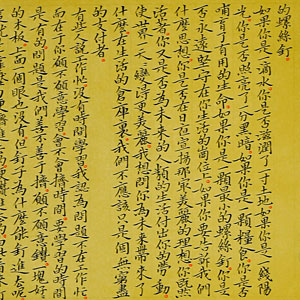 的螺絲釘
如果你是一滴水你是否滋潤了一寸土地如果你是一綫陽
光你是否照亮了一分黑暗如果你是一顆糧食你是否
哺育了有用的生命如果你是一顆最小的螺絲釘你是
否永遠堅守在你生活的崗位上如果你要告訴我們
什麼思想你是否在日夜宣揚那最美麗的理想你既然
活著你又是否為未來的人類的生活付出你的勞動
使世界一天天變得更美麗我想問你為未來帶來了
什麼在生活的倉庫裏我們不應該只是個無窮盡
的支付者
有些人說工作忙沒有時間學習我認為問題不在工作忙
而在於你願不願意學習會不會擠時間要學習的時間
是有的問題是我們善不善于擠願不願意鑽一塊好
的木板上面一個眼也沒有但釘子為什麼能釘進去呢